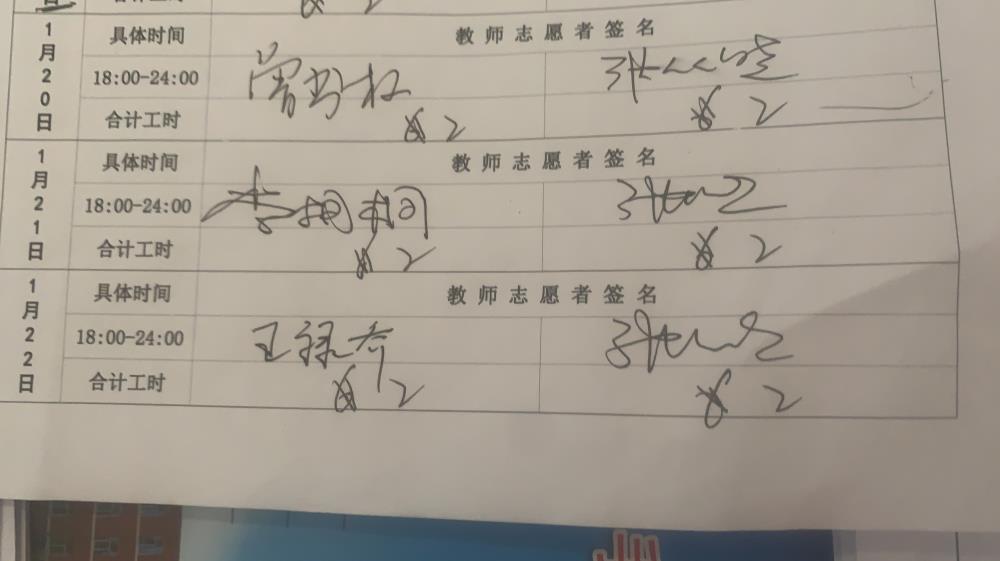 合计工时 2
1月20日
具体时间 教师志愿者签名
18:00-24:00
合计工时 2 2
1月21日
具体时间 教师志愿者签名
18:00-24:00
合计工时 2 2
1月22日
具体时间 教师志愿者签名
18:00-24:00 王禄奇
合计工时 2 2